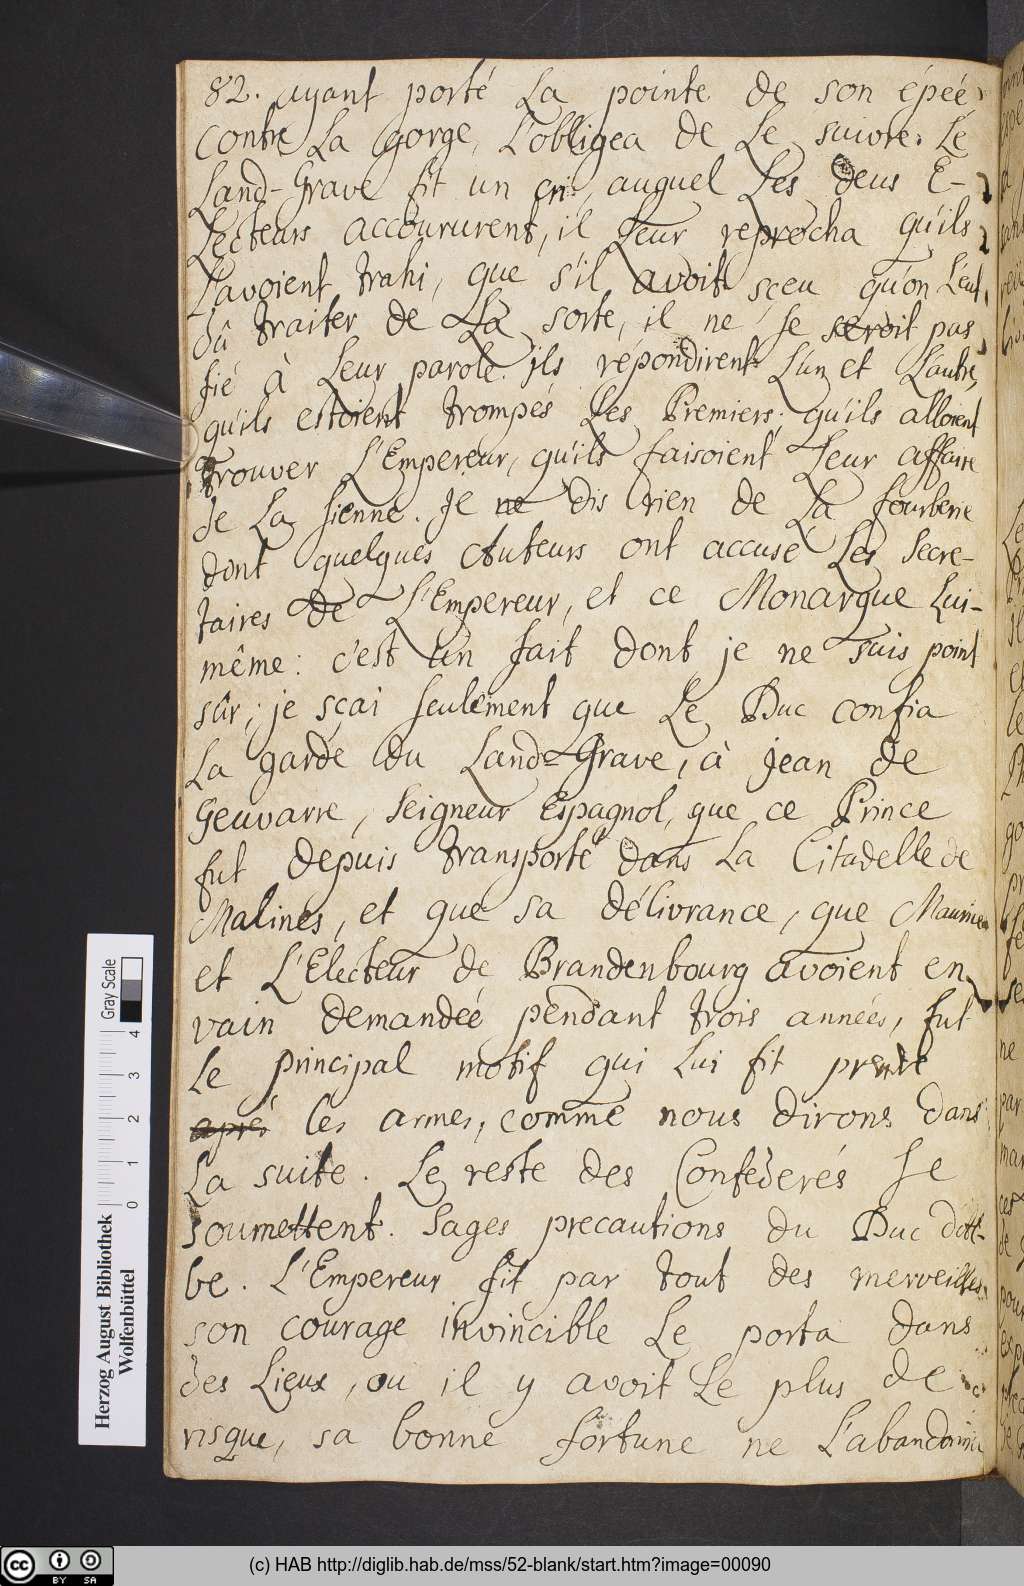 82. ayant porté La pointe de son épeé
contre La gorge, L'obligea de Le suivre. Le
Land-Grave fit un cri, auquel Les deus E-
Lecteurs accoururent, il Leur reprocha qu'ils
L'avoient trahi, que s'il avoit sçeu qu'on L'eut
dû traiter de La sorte, il ne se seroit pas
fié à Leur parole. ils répondirent L'un et L'autre,
qu'ils estoient trompés Les Premiers; qu'ils alloient
trouver L'Empereur, qu'ils faisoient Leur affaire
de La sienne. Je ne dis rien de La fourberie
dont quelques Auteurs ont accusé Les Secre-
taires de L'Empereur, et ce Monarque Lui-
même: c'est un fait dont je ne suis point
sûr; je sçai seulement que Le Duc confia
La garde du Land-Grave, à Jean de
Geuvarre, Seigneur Espagnol, que ce Prince
fut depuis transporté dans La Citadelle de
Malines, et que sa délivrance, que Maurice
et L'Electeur de Brandenbourg avoient en
vain demandeé pendant trois anneés, fut
Le principal motif qui Lui fit prendre
aprés les armes, comme nous dirons dans
La suite. Le reste des Confederés se
soumettent. Sages precautions du Duc d'Al-
be. L'Empereur fit par tout des merveilles,
son courage invincible Le porta dans
des Lieux, ou il y avoit Le plus de
risque, sa bonne fortune ne L'abandonna
Herzog August Bibliothek
Wolfenbüttel
Gray Scale
0 1 2 3 4
cc BY SA
(c) HAB http://diglib.hab.de/mss/52-blank/start.htm?image=00090